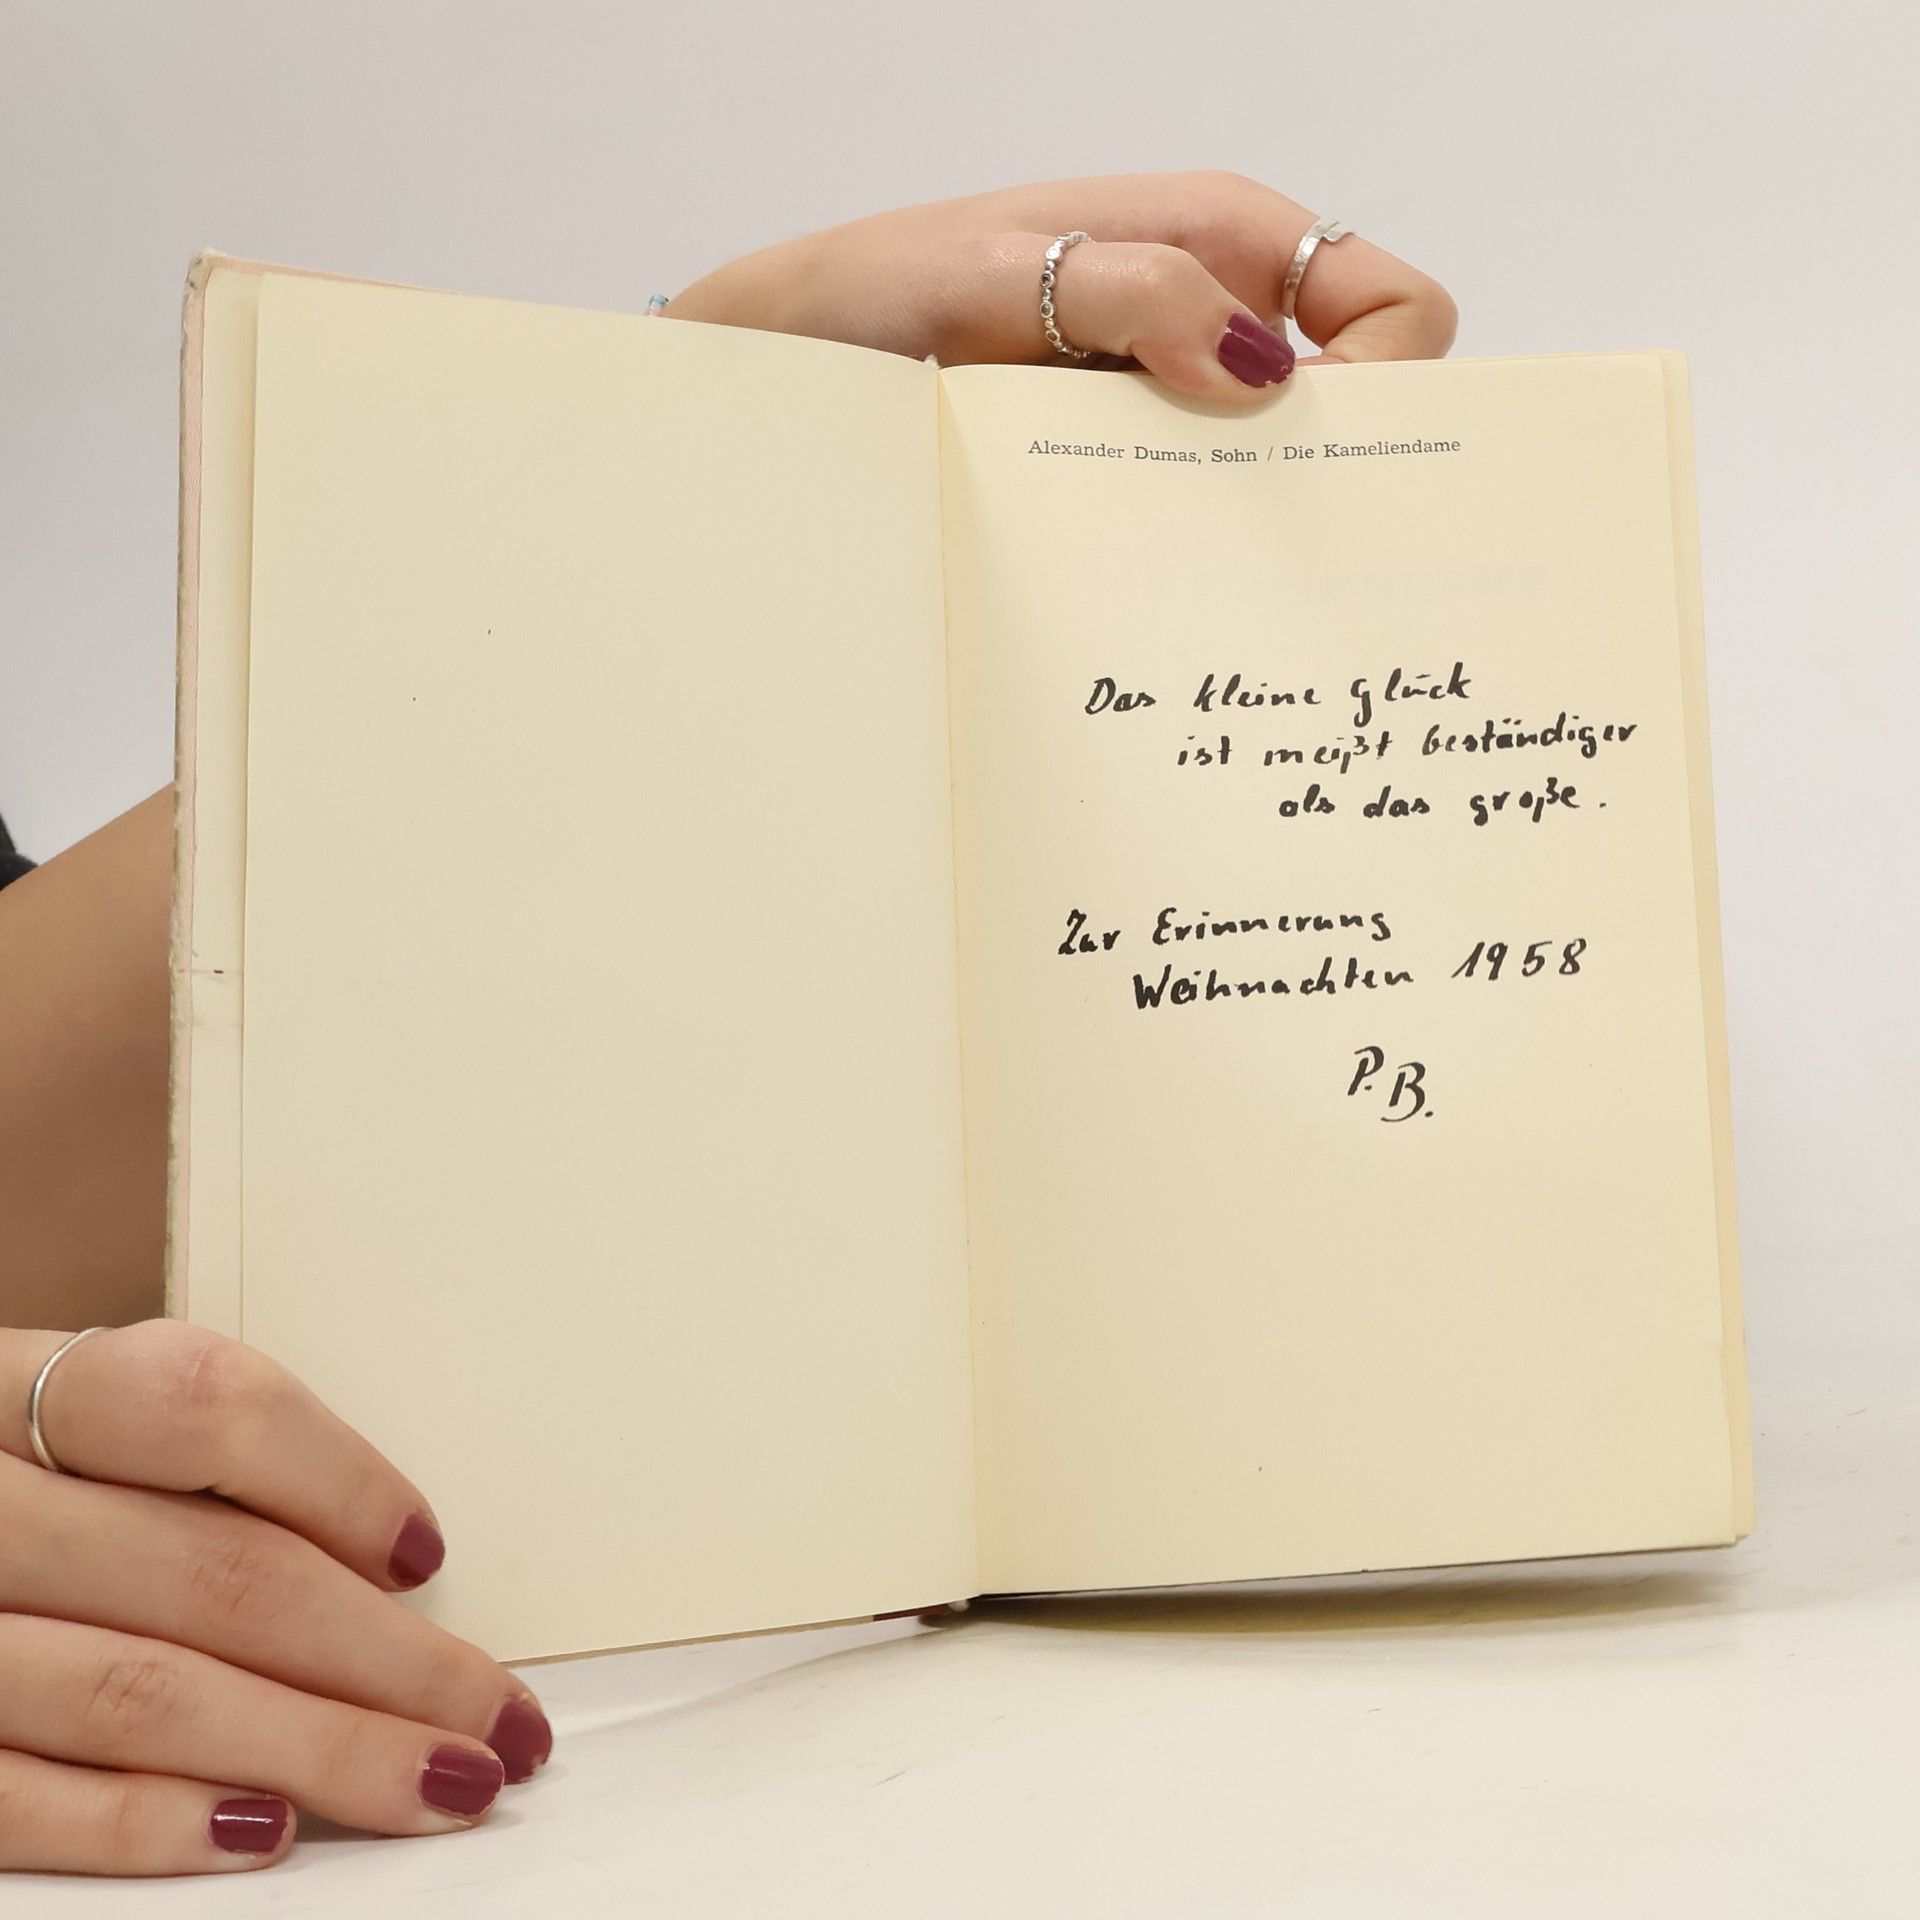 Alexander Dumas, Sohn / Die Kameliendame
Das kleine Glück
ist meißt beständiger
als das große.
Zur Erinnerung
Weihnachten 1958
P. B.